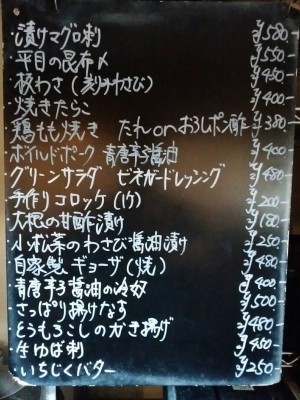 ・漬けマグロ刺 ¥580-
・平目の昆布〆 ¥550-
・板わさ(刻みわさび) ¥450-
・焼きたらこ ¥400-
・鶏もも焼き たれorおろしポン酢 ¥380-
・ボイルドポーク 青唐辛子醤油 ¥400-
・グリーンサラダ ビネガードレッシング ¥480-
・手作りコロッケ(1ケ) ¥200-
・大根の甘酢漬け ¥180-
・小松菜のわさび醤油漬け ¥250-
・自家製ギョーザ(焼) ¥480-
・青唐辛子醤油の冷奴 ¥400-
・さっぱり揚げなす ¥500-
・とうもろこしのかき揚げ ¥480-
・生ゆば刺 ¥450-
・いちじくバター ¥250-